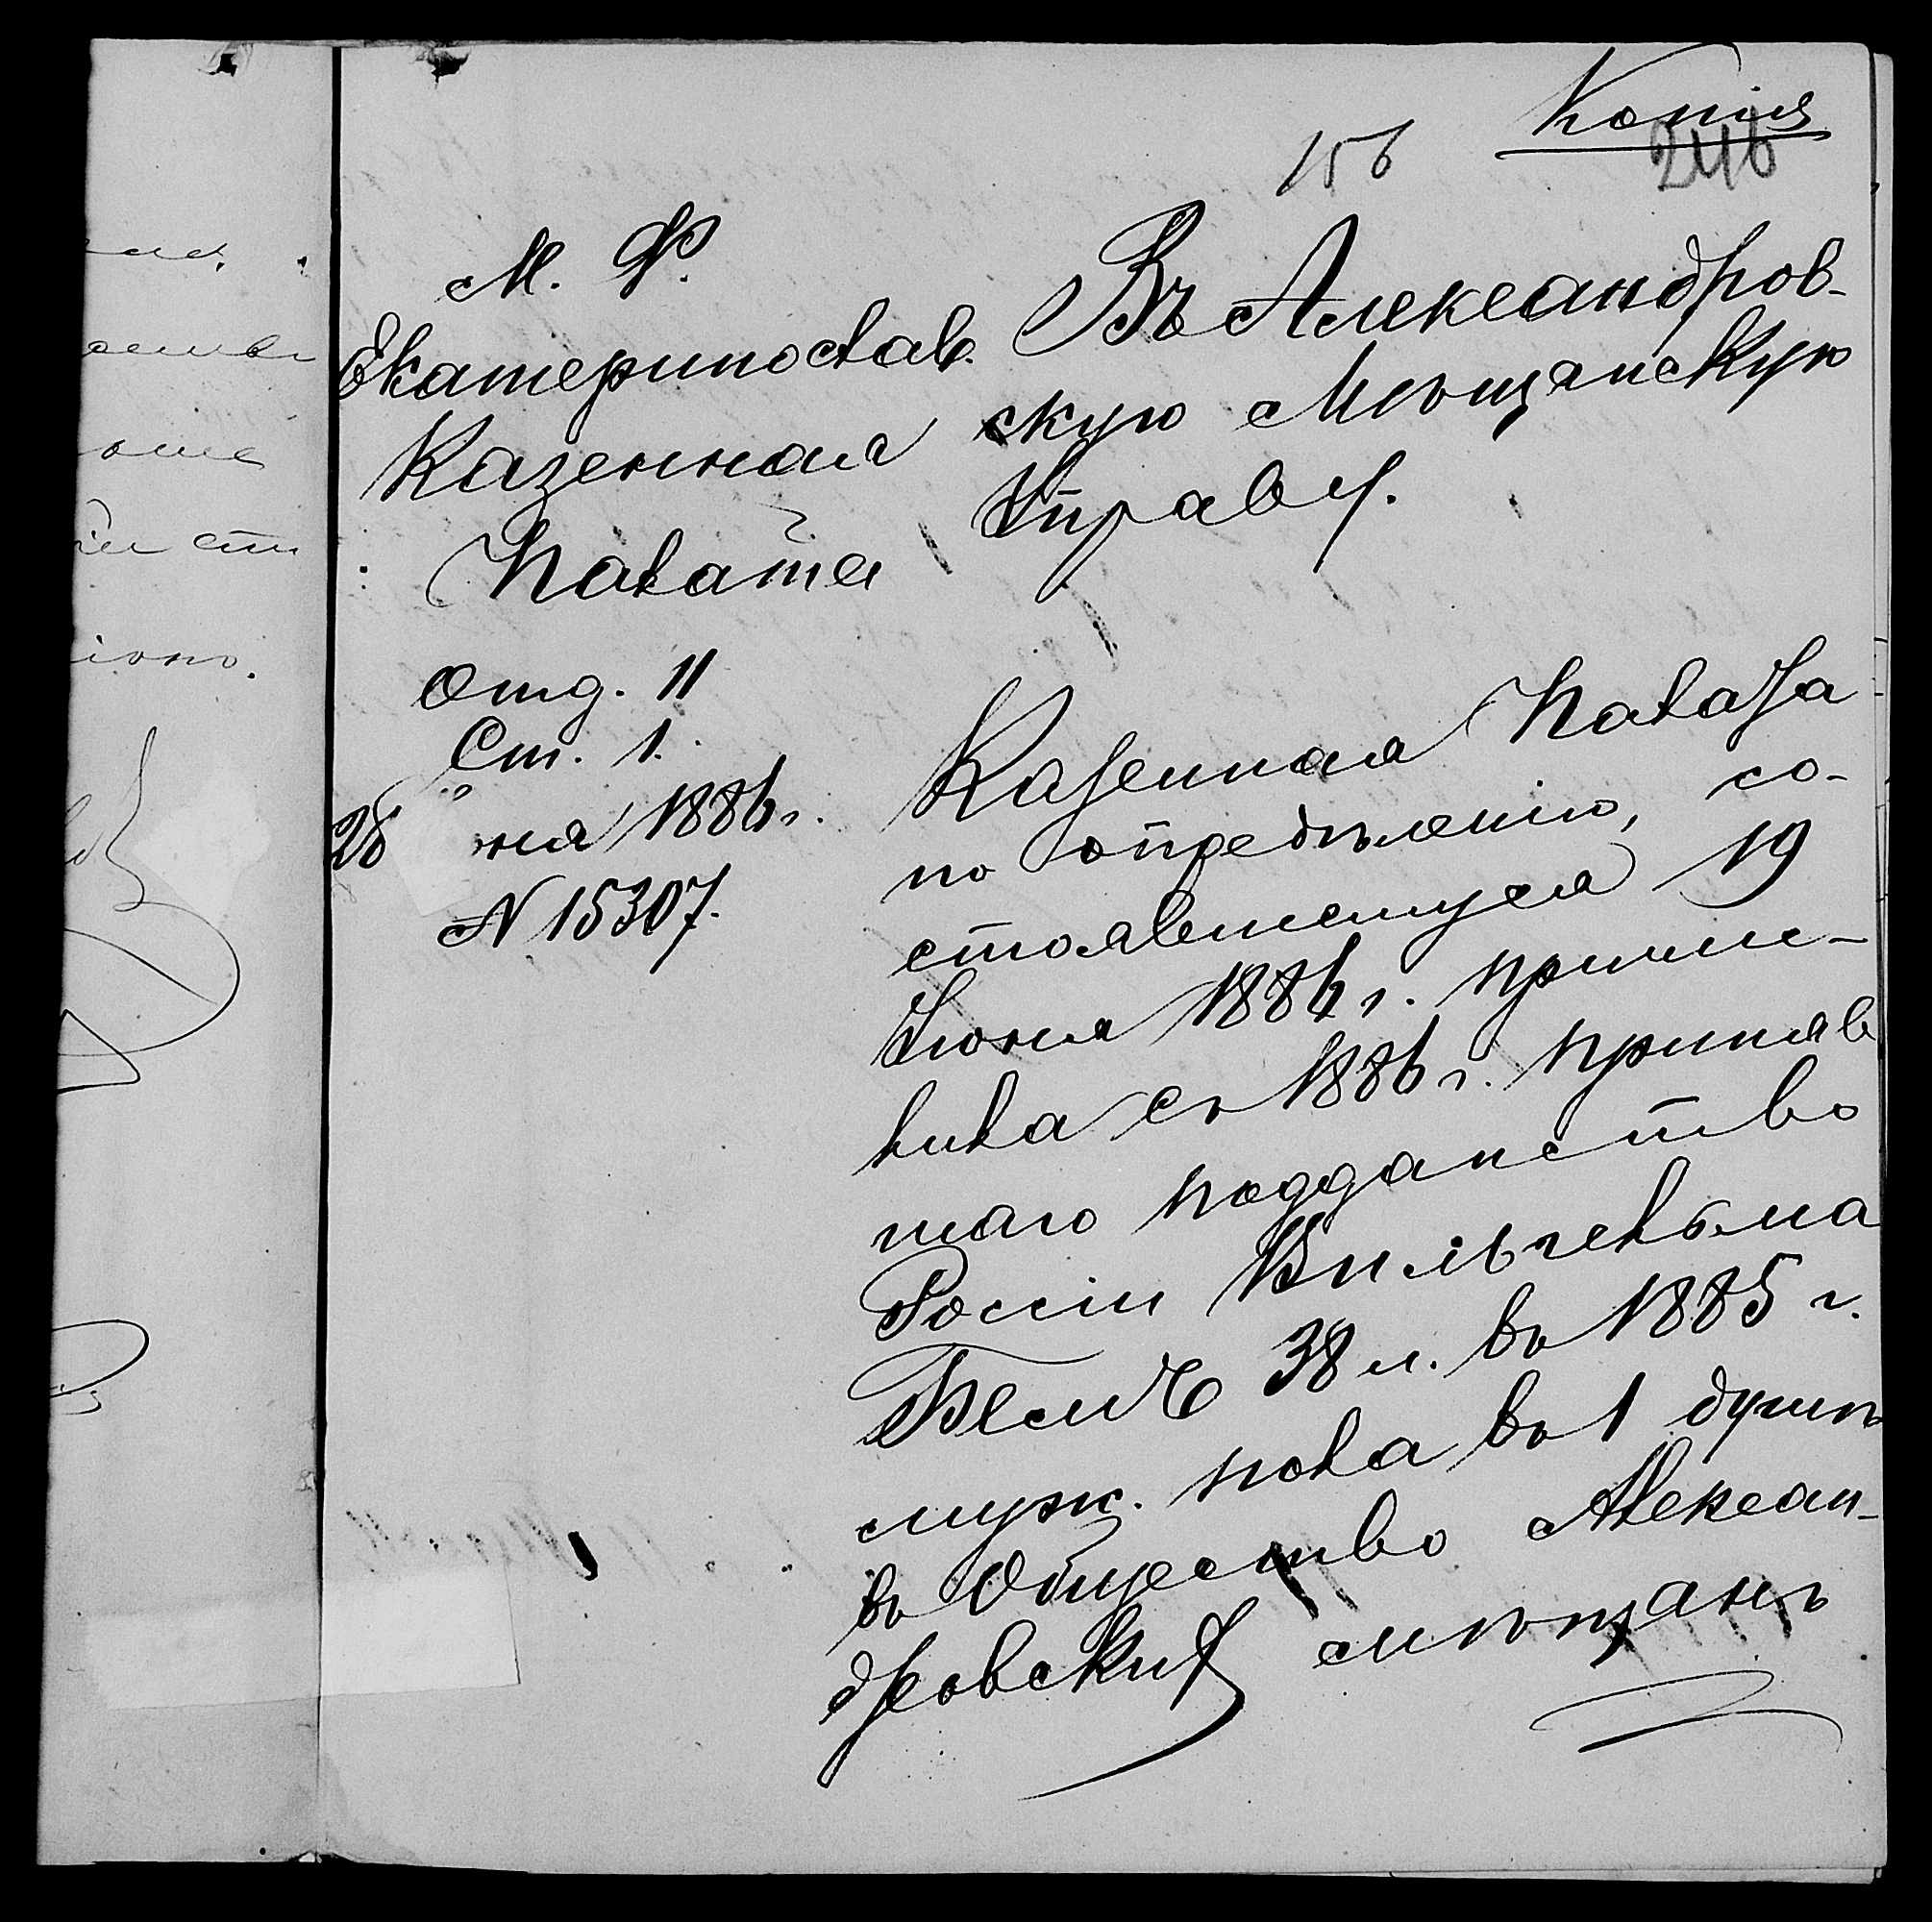 Копія
156
246
М. Ф.
Екатеринослав.
Казенная
Палата
Отд. II
Ст. 1.
28 ня 1886 г.
N 15307.
Въ Александров-
скую Мѣщанскую
Управу.
Казенная Палата
по опредѣленію, со-
стоявшемуся 19
Іюня 1886 г. причис-
лила съ 1886 г. приняв
шаго подданство
Россіи Вильгельма
38 л. въ 1885 г.
муж. пола въ 1 душѣ
въ Общество Алексан-
дровскихъ мѣщанъ